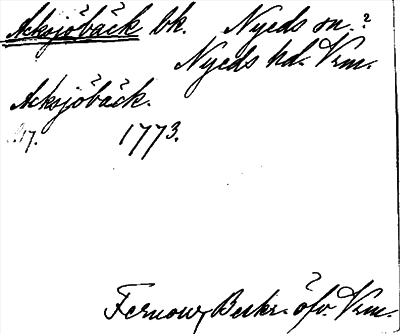 Acksjöbäck bk. Nyeds sn.?
Nyeds hd. Vrm.
Acksjöbäck.
17. 1773.
Fernow, Beskr. öfv. Vrm.